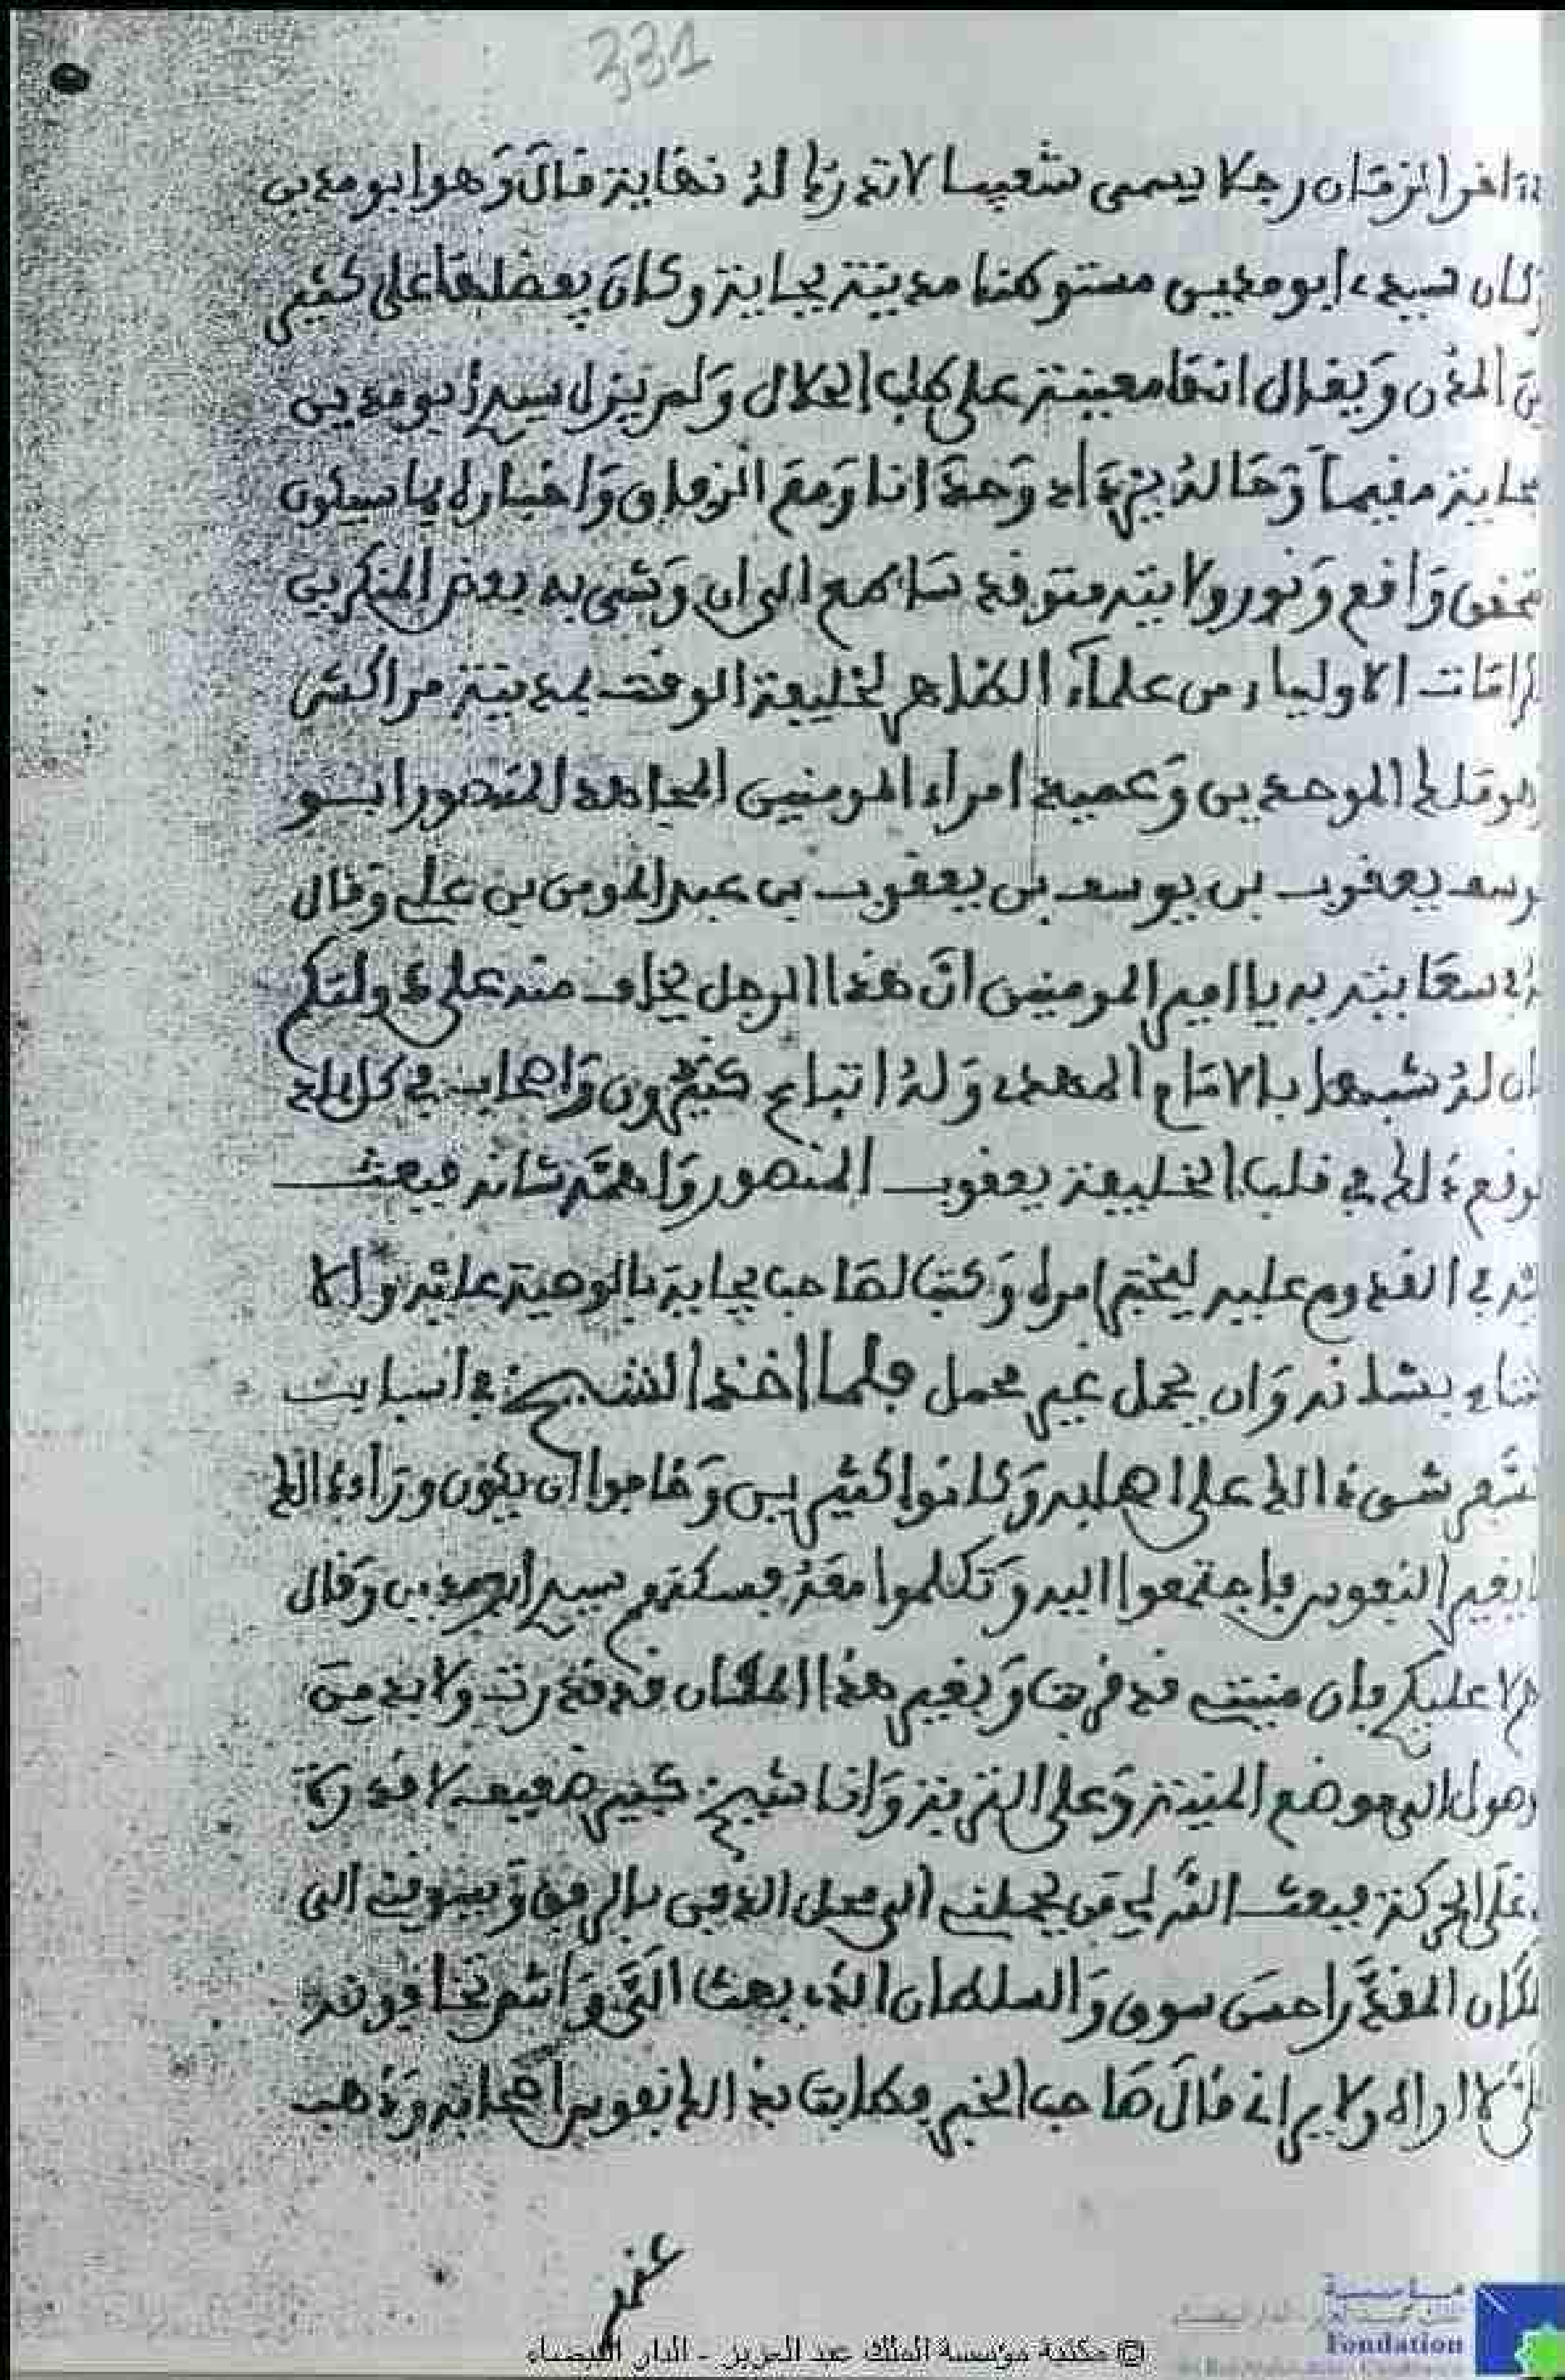 331
اخر الزمان رجلا يسمى شعيبا لا تدرى له نهاية قال وهو ابو مدين
وكان سيدي ابو مدين مستوطنا مدينة بجاية وكان يفضلها على كثير
من المدن ويقال انها معينة على طلب الحلال ولم يزل سيد ابو مدين
بجاية مقيما وحاله يزداد وحدانا ومع الرفاق واخباره بما سيكون
تحقق واقع ونور ولايته متوقد ساطع الى ان وشى به بعض المنكرين
كرامات الاولياء من علماء الظاهر لخليفة الوقت بمدينة مراكش
الموحدين وعميد امراء المومنين المجاهد المنصور ابو
يوسف يعقوب بن يوسف بن يعقوب بن عبد المومن بن علي وقال
سعايته به يا امير المومنين ان هذا الرجل يخاف منه على دولتكم
ان له شبها بالامام المهدي وله اتباع كثيرون واصحاب في كل بلد
فوقع ذلك في قلب الخليفة يعقوب المنصور واهمه شانه فبعث
في القدوم عليه ليختبر امره وكتب لصاحب بجاية بالوصية عليه والا
عتناء بشانه وان يحمل غير محمل فلما اخذ الشيخ في اسباب
السفر شق ذلك على اصحابه وكانوا كثيرين وخافوا ان يكون وراء ذلك
فاجتمعوا اليه وتكلموا معه فسكتهم سيد ابو مدين وقال
لا عليكم فان منيتي قد قربت وبغير هذا المكان قد قدرت ولا بد من
وصول الى موضع المنية وعلى النزية وانا شيخ كبير ضعيف لا قدرة
على الحركة فبعث الله لي من يحملني اليه بالرفق ويسوقني الى
المكان المقدر احسن سوق والسلطان الذي بعث الي وانتم تخافونه
لا اراه ولا يراني قال صاحب الخبر فطابت بذلك نفوس اصحابه وذهب
عنهم
© مكتبة مؤسسة الملك عبد العزيز - الدار البيضاء
مؤسسة
Fondation